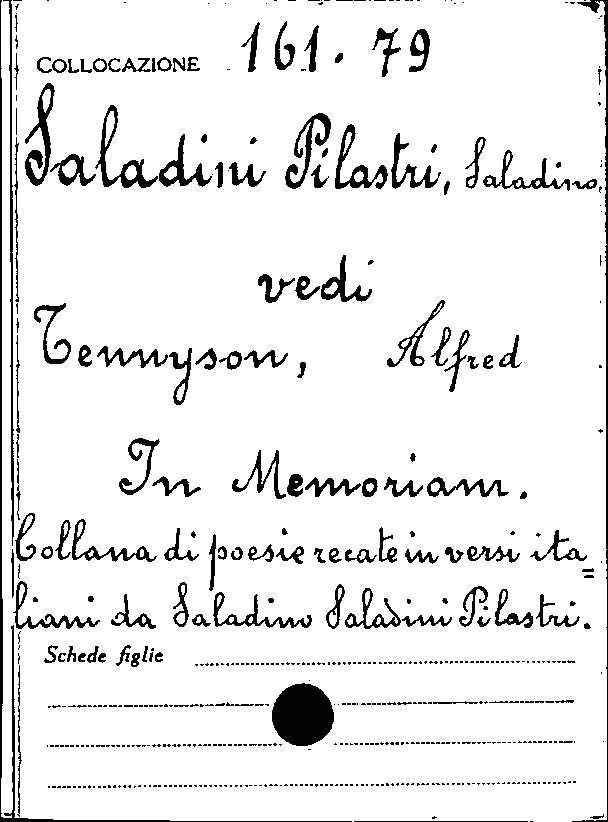 COLLOCAZIONE 161. 79
Saladini Pilastri, Saladino
vedi
Tennyson, Alfred
In Memoriam.
Collana di poesie recate in versi ita=
liani da Saladino Saladini Pilastri.
Schede figlie